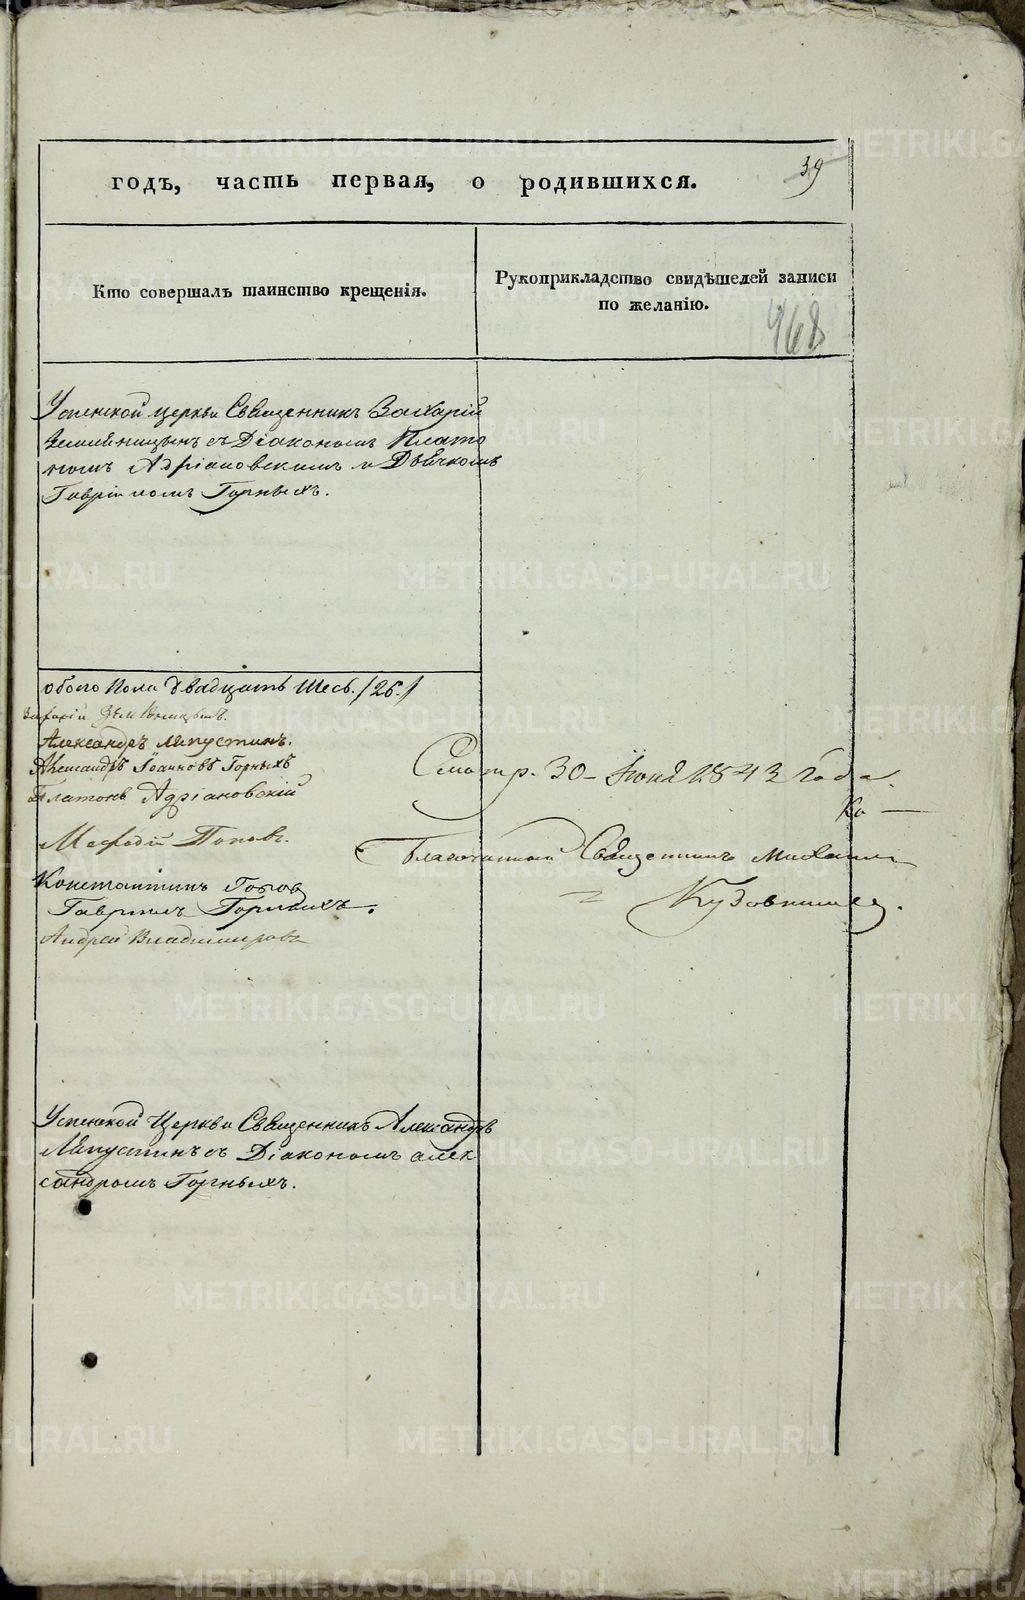 годъ, часть первая, о родившихся.
39
Кто совершалъ таинство крещенія.
Рукоприкладство свидѣтелей записи
по желанію.
468
Успенской церкви Священникъ Захарій
Земляницынъ съ Діакономъ Плато
номъ Адріановскимъ и Дьячкомъ
Гавріиломъ Горныхъ.
обоего пола двадцать шесь. /26./
Захарій Земляницынъ.
Александръ Ляпустинъ.
Александръ Іоанновъ Горныхъ
Платонъ Адріановскій
Смотр. 30 Іюня 1843 Года.
Меѳодій Поповъ.
Благочинный Священникъ Михаилъ
Константинъ Поповъ
Гаврилъ Горныхъ.
Андрей Владимировъ
Успенской Церкви Священникъ Александръ
Ляпустинъ съ Діакономъ алек
сандромъ Горныхъ.
METRIKI.GASO-URAL.RU